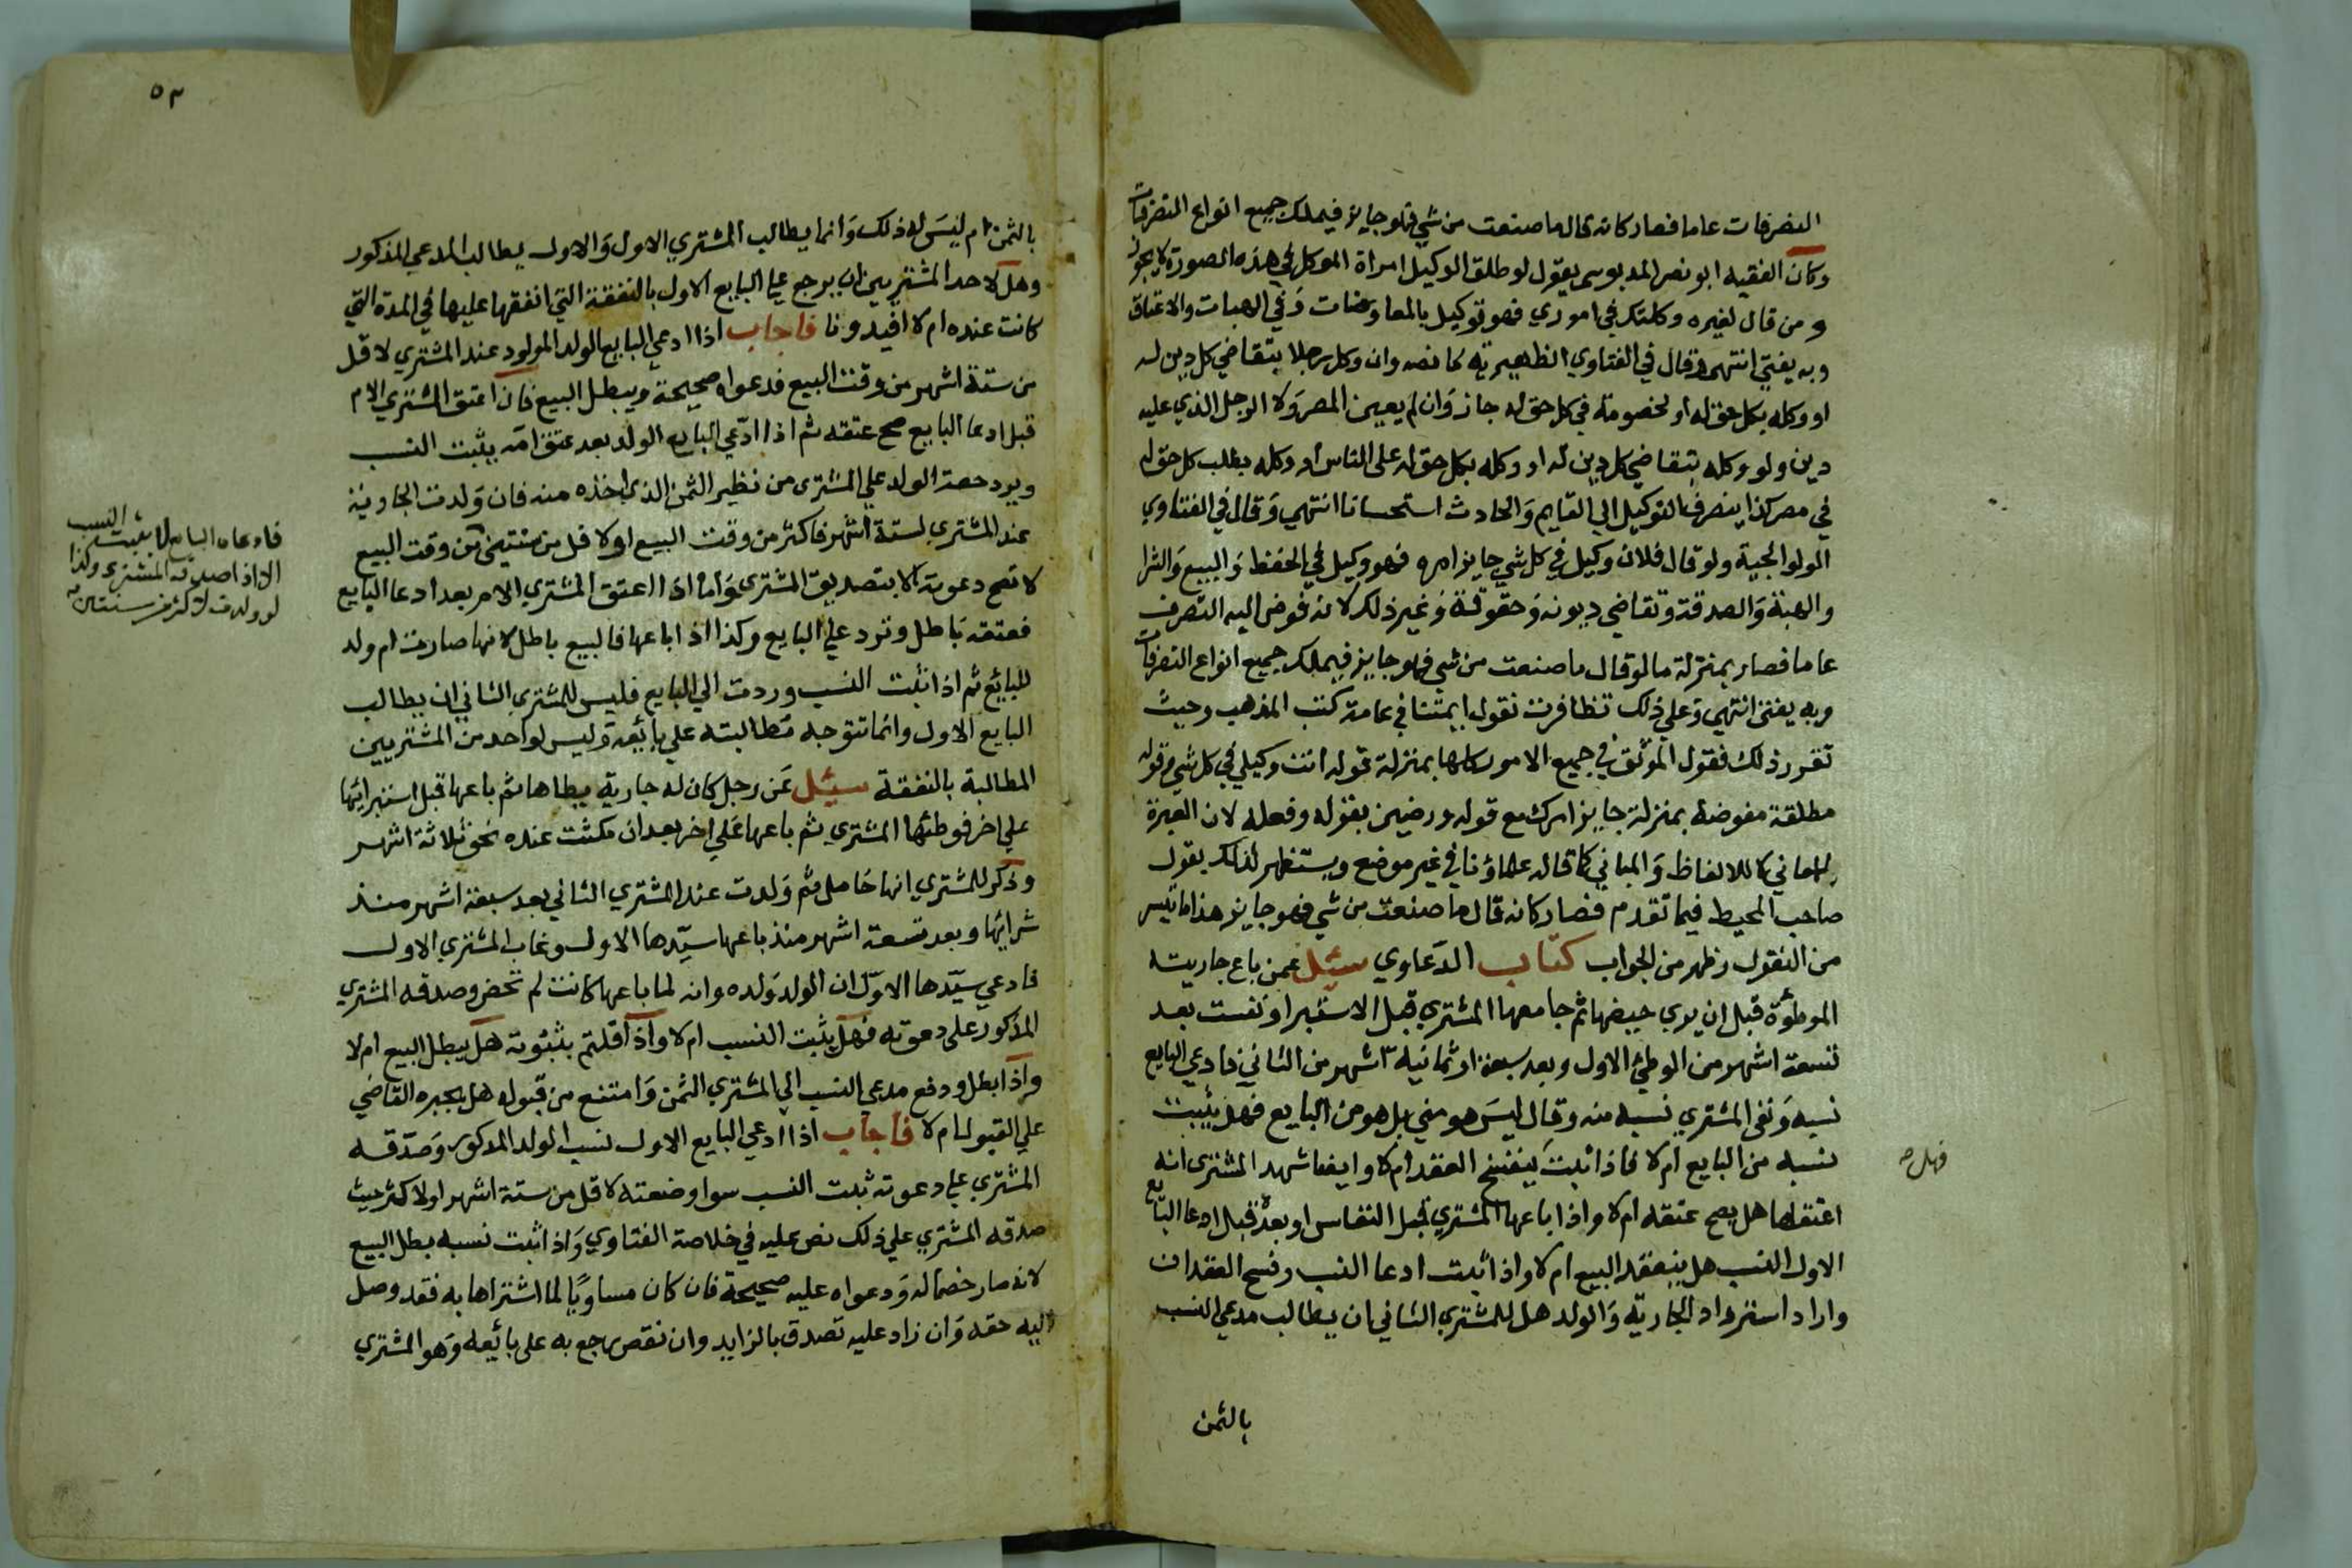 التصرفات عاما فصار كانه قال ما صنعت من شي فهو جايز فيملك جميع انواع التصرفات
وكان الفقيه ابو نصر الدبوسي يقول لو طلق الوكيل امراة الموكل في هذه الصورة لا يجوز
و من قال لغيره وكلتك في اموري فهو توكيل بالمعاوضات وفي الهبات والاعتاق
وبه يفتي انتهي وقال في الفتاوي الظهيرية ما نصه وان وكل رجلا يتقاضي كل دين له
او وكله بكل حق له او لخصومة في كل حق له جاز وان لم يعين المصر ولا الرجل الذي عليه
دين ولو وكله بتقاضي كل دين له او وكله بكل حق له على الناس او وكله بطلب كل حق له
في مصر كذا ينصرف التوكيل الي القايم والحادث استحسانا انتهي وقال في الفتاوي
الولوالجية ولو قال فلان وكيل في كل شي جايز امره فهو وكيل في الحفظ والبيع والشرا
والهبة والصدقة وتقاضي ديونه وحقوقه وغير ذلك لانه فوض اليه التصرف
عاما فصار بمنزلة ما لو قال ما صنعت من شي فهو جايز فيملك جميع انواع التصرفات
وبه يفتي انتهي وعلي ذلك تظافرت نقول ايمتنا في عامة كتب المذهب وحيث
تقرر ذلك فقول الموثق في جميع الامور كلها بمنزلة قوله انت وكيلي في كل شي وقوله
مطلقة مفوضة بمنزلة جايز امرك مع قوله ورضيت بقوله وفعله لان العبرة
للمعاني لا للالفاظ والمباني كما قاله علماؤنا في غير موضع ويستظهر لذلك بقول
صاحب المحيط فيما تقدم فصار كانه قال ما صنعت من شي فهو جايز هذا ما تيسر
من النقول وظهر من الجواب كتاب الدعاوي سئل عمن باع جاريته
الموطؤة قبل ان يري حيضها ثم جامعها المشتري قبل الاستبرا ونفست بعد
تسعة اشهر من الوطئ الاول وبعد سبعة او ثمانية اشهر من الثاني فادعي البايع
نسبه ونفى المشتري نسبه منه وقال ليس هو مني بل هو من البايع فهل يثبت
نسبه من البايع ام لا فاذا ثبت ينفسخ العقد ام لا وايضا شهد المشتري انه
اعتقلها هل يصح عتقه ام لا واذا باعها المشتري قبل النفاس او بعده قبل ادعا البايع
الاول النسب هل ينعقد البيع ام لا واذا ثبت ادعا النسب وفسخ العقدان
واراد استرداد الجارية والولد هل للمشتري الثاني ان يطالب مدعي النسب
بالثمن
فهل صح
٥٣
بالثمن ام ليس له ذلك وانما يطالب المشتري الاول والاول يطالب المدعي المذكور
وهل لاحد المشتريين ان يرجع علي البايع الاول بالنفقة التي انفقها عليها في المدة التي
كانت عنده ام لا افيدونا فاجاب اذا ادعي البايع الولد المولود عند المشتري لاقل
من ستة اشهر من وقت البيع فدعواه صحيحة ويبطل البيع فان اعتق المشتري الام
قبل ادعا البايع صح عتقه ثم اذا ادعي البايع الولد بعد عتق امه يثبت النسب
ويرد حصة الولد علي المشتري من نظير الثمن الذي اخذه منه فان ولدت الجارية
عند المشتري لستة اشهر فاكثر من وقت البيع او لاقل من سنتين من وقت البيع
لا تصح دعوته الا بتصديق المشتري واما اذا اعتق المشتري الام بعد ادعا البايع
فعتقه باطل وترد علي البايع وكذا اذا باعها فالبيع باطل لانها صارت ام ولد
للبائع ثم اذا ثبت النسب وردت الي البايع فليس للمشتري الثاني ان يطالب
البايع الاول وانما تتوجه مطالبته علي بائعه وليس لواحد من المشتريين
المطالبة بالنفقة سئل عن رجل كان له جارية يطاها ثم باعها قبل استبرائها
علي اخر فوطئها المشتري ثم باعها علي اخر بعد ان مكثت عنده نحو ثلاثة اشهر
وذكر للمشتري انها حامل ثم ولدت عند المشتري الثاني بعد سبعة اشهر منذ
شرائها وبعد تسعة اشهر منذ باعها سيدها الاول وغاب المشتري الاول
فادعي سيدها الاول ان الولد ولده وانه لما باعها كانت لم تحض وصدقه المشتري
المذكور على دعوته فهل يثبت النسب ام لا واذا قلتم بثبوته هل يبطل البيع ام لا
واذا بطل ودفع مدعي النسب الي المشتري الثمن وامتنع من قبوله هل يجبره القاضي
علي القبول ام لا فاجاب اذا ادعي البايع الاول نسب الولد المذكور وصدقه
المشتري علي دعوته ثبت النسب سوا وضعته لاقل من ستة اشهر او لاكثر حيث
صدقه المشتري علي ذلك نص عليه في خلاصة الفتاوي واذا ثبت نسبه بطل البيع
لانه صار خصما له ودعواه عليه صحيحة فان كان مساويا لما اشتراها به فقد وصل
اليه حقه وان زاد عليه تصدق بالزايد وان نقص رجع به على بائعه وهو المشتري
فادعاه البايع لا يثبت النسب
الا اذا صدقه المشتري وكذا
لو ولدت لاكثر من سنتين